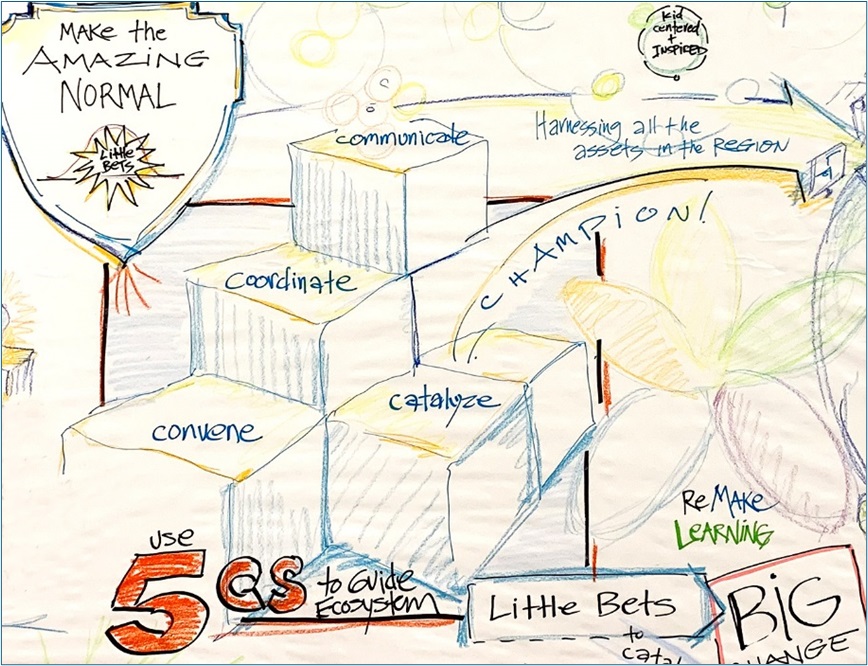 Make the
AMAZING
NORMAL
Little
BETS
Kid
centered
+
INSPIRED
Harnessing all the
assets in the REGION
communicate
CHAMPION!
coordinate
catalyze
convene
ReMAKE
LEARNING
use
5 CS to Guide
Ecosystem
Little Bets
to
BIG